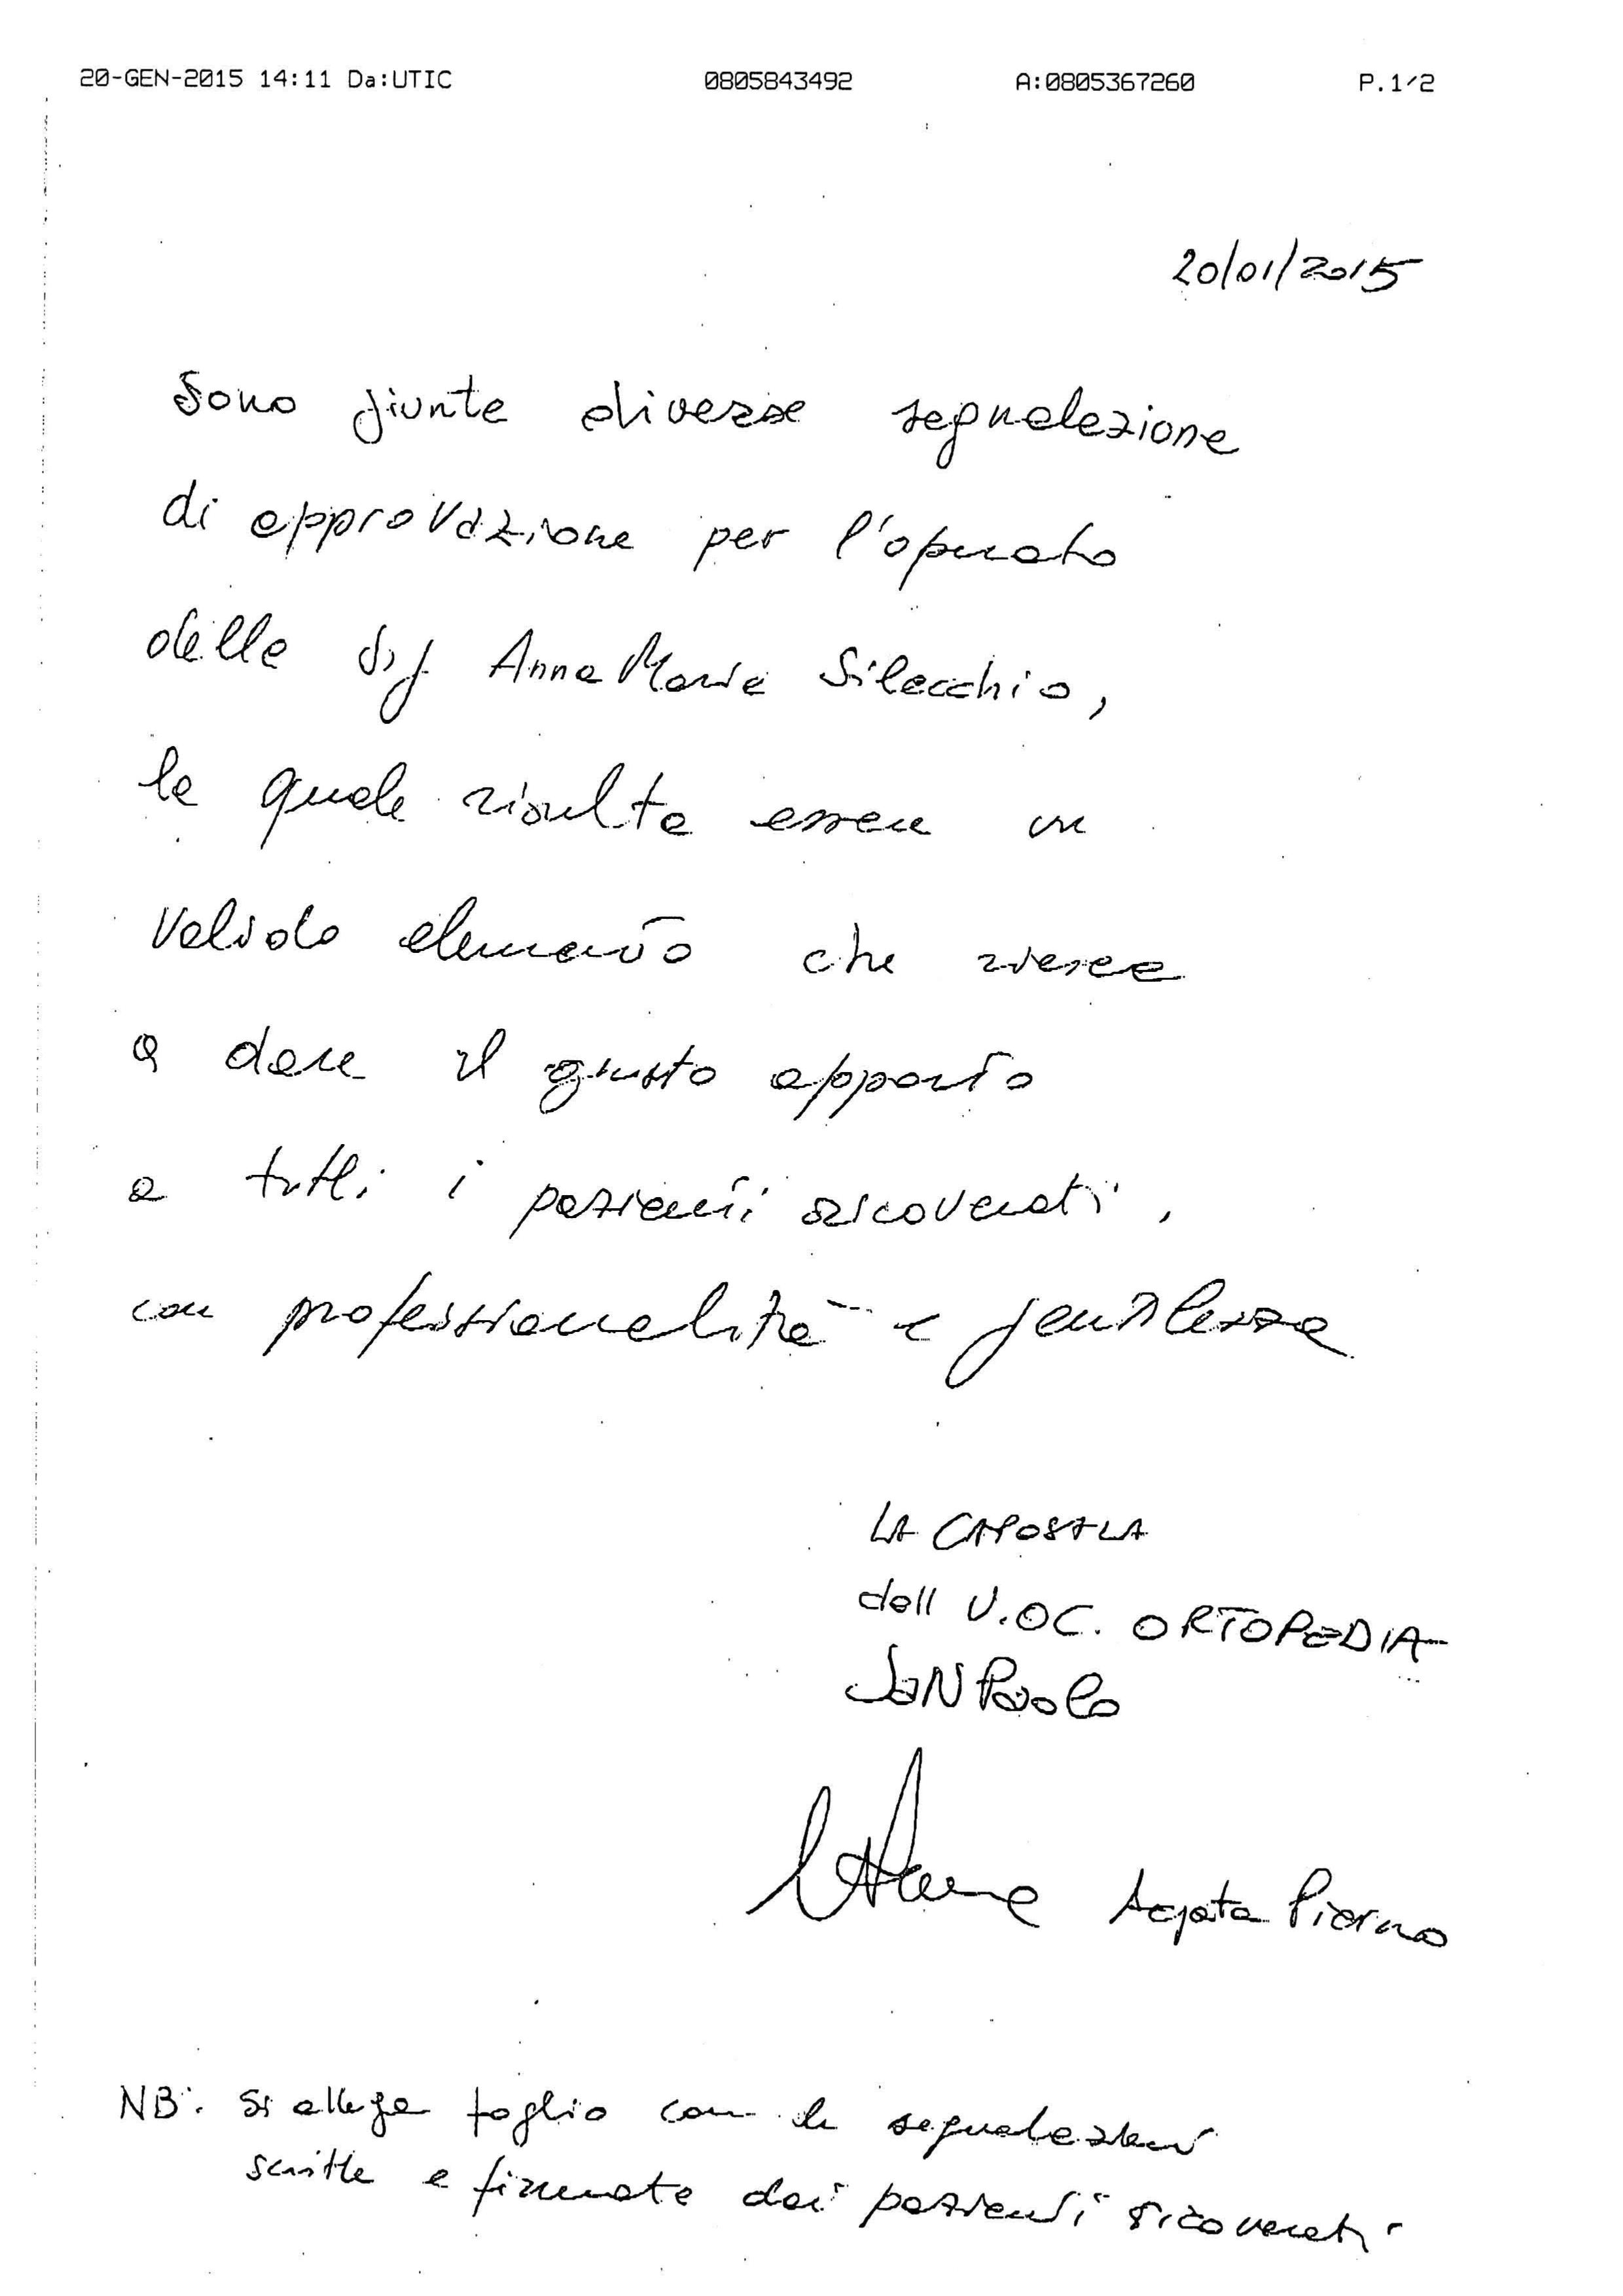 20-GEN-2015 14:11 Da:UTIC 0805843492 A:0805367260 P.1/2
20/01/2015
Sono giunte diverse segnalazione
di approvazione per l'operato
della Sig Anna Maria Silecchio,
la quale risulta essere un
valido elemento che riesce
a dare il giusto apporto
a tutti i pazienti ricoverati,
con professionalità e gentilezza
LA CAPOSALA
dell U.OC. ORTOPEDIA
SAN Paolo
Agata Piorno
NB: Si allega foglio con le segnalazioni
scritte e firmate dai pazienti ricoverati